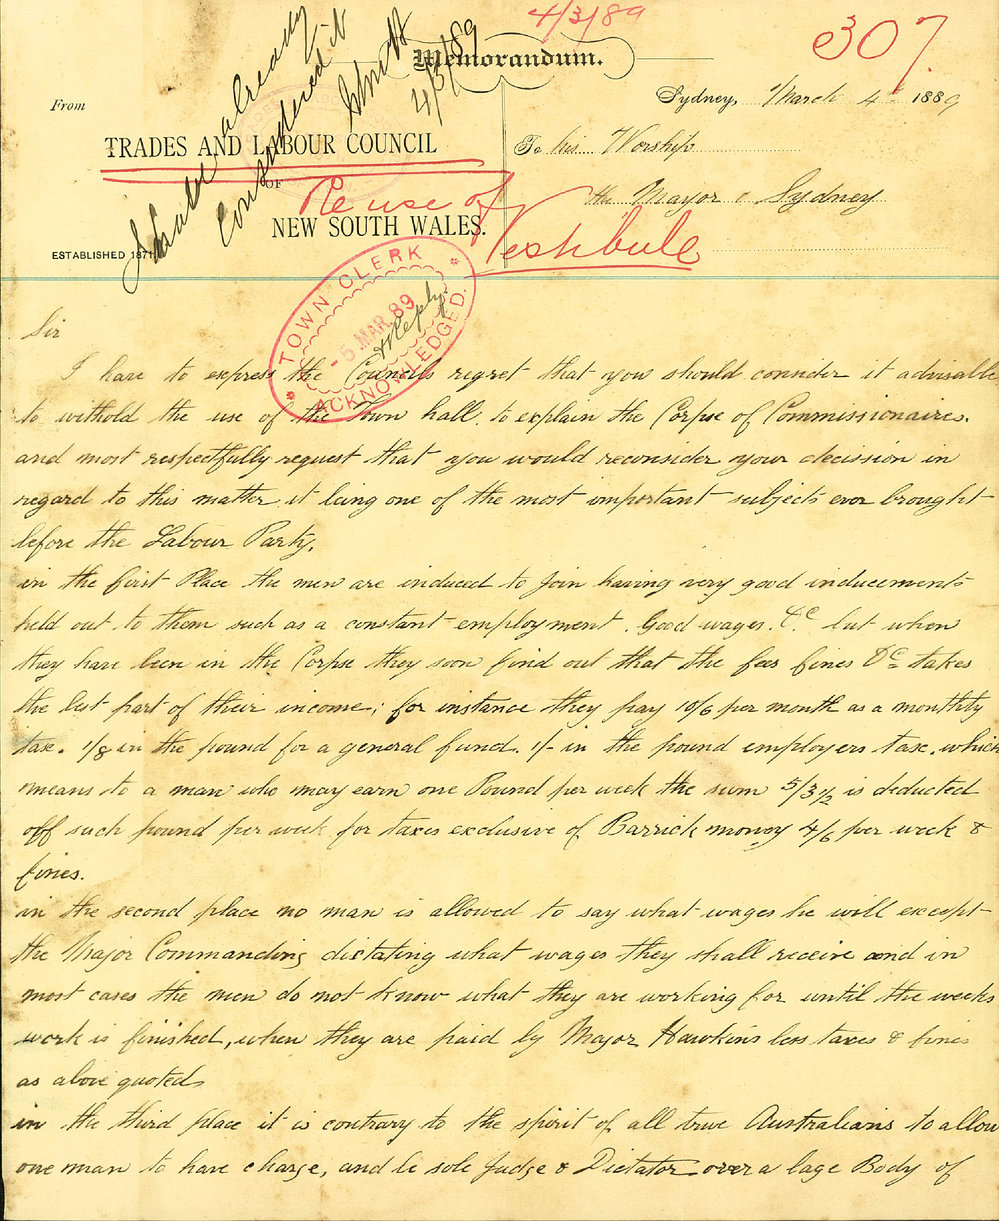 4/3/89
307.
Memorandum.
From
Sydney, March 4th 1889
TRADES AND LABOUR COUNCIL
OF
NEW SOUTH WALES.
ESTABLISHED 1871.
To his Worship
the Mayor o Sydney
already
Considered it
4/3/89
Re use of
Vestibule
TOWN CLERK
- 5 MAR. 89
Reply
ACKNOWLEDGED.
Sir
I have to express the Councils regret that you should consider it advisable
to withold the use of the Town hall, to explain the Corpse of Commissionaires.
and most respectfully request that you would reconsider your decission in
regard to this matter it being one of the most important subjects ever brought
before the Labour Party.
in the first Place the men are induced to join having very good inducements
held out to them such as a constant employment. Good wages. &c. but when
they have been in the Corpse they soon find out that the fees fines &c takes
the best part of their income; for instance they pay 10/6 per month as a monthly
tax. 1/8 in the pound for a general fund. 1/- in the pound employers tax. which
means to a man who may earn one Pound per week the sum 5/3½ is deducted
off such pound per week for taxes exclusive of Barrick money 4/6 per week &
fines.
in the second place no man is allowed to say what wages he will except
the Major Commanding dictating what wages they shall receive and in
most cases the men do not know what they are working for until the weeks
work is finished, when they are paid by Major Hawkins less taxes & fines
as above quoted
in the third place it is contrary to the spirit of all true Australians to allow
one man to have charge, and be sole Judge & Dictator over a lage Body of